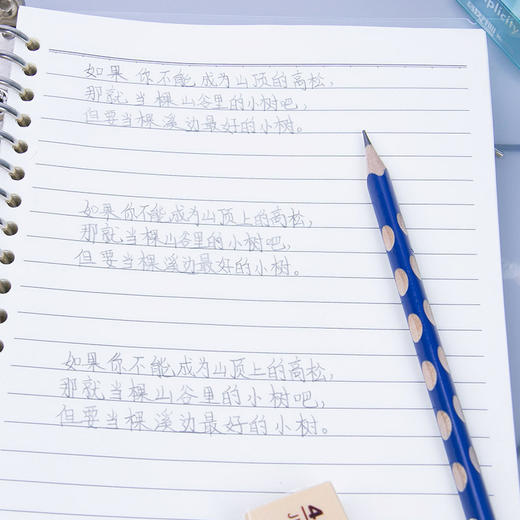 如果你不能成为山顶的高松,
那就当棵山谷里的小树吧,
但要当棵溪边最好的小树。
如果你不能成为山顶上的高松,
那就当棵山谷里的小树吧,
但要当棵溪边最好的小树。
如果你不能成为山顶上的高松,
那就当棵山谷里的小树吧,
但要当棵溪边最好的小树。
4